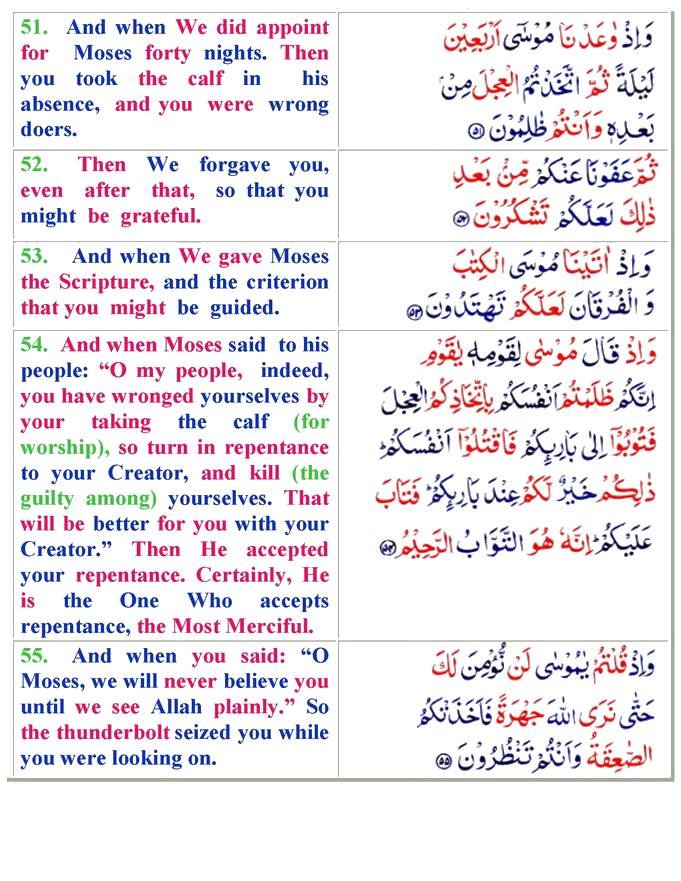 51. And when We did appoint
for Moses forty nights. Then
you took the calf in his
absence, and you were wrong
doers.
وَاِذْ وٰعَدْنَا مُوْسٰٓى اَرْبَعِيْنَ
لَيْلَةً ثُمَّ اتَّخَذْتُمُ الْعِجْلَ مِنْۢ
بَعْدِهٖ وَاَنْتُمْ ظٰلِمُوْنَ ۝۵۱
52. Then We forgave you,
even after that, so that you
might be grateful.
ثُمَّ عَفَوْنَا عَنْكُمْ مِّنْۢ بَعْدِ
ذٰلِكَ لَعَلَّكُمْ تَشْكُرُوْنَ ۝۵۲
53. And when We gave Moses
the Scripture, and the criterion
that you might be guided.
وَاِذْ اٰتَيْنَا مُوْسَى الْكِتٰبَ
وَ الْفُرْقَانَ لَعَلَّكُمْ تَهْتَدُوْنَ ۝۵۳
54. And when Moses said to his
people: “O my people, indeed,
you have wronged yourselves by
your taking the calf (for
worship), so turn in repentance
to your Creator, and kill (the
guilty among) yourselves. That
will be better for you with your
Creator.” Then He accepted
your repentance. Certainly, He
is the One Who accepts
repentance, the Most Merciful.
وَاِذْ قَالَ مُوْسٰى لِقَوْمِهٖ يٰقَوْمِ
اِنَّكُمْ ظَلَمْتُمْ اَنْفُسَكُمْ بِاتِّخَاذِكُمُ الْعِجْلَ
فَتُوْبُوْٓا اِلٰى بَارِئِكُمْ فَاقْتُلُوْٓا اَنْفُسَكُمْ ؕ
ذٰلِكُمْ خَيْرٌ لَّكُمْ عِنْدَ بَارِئِكُمْ ؕ فَتَابَ
عَلَيْكُمْ ؕ اِنَّهٗ هُوَ التَّوَّابُ الرَّحِيْمُ ۝۵۴
55. And when you said: “O
Moses, we will never believe you
until we see Allah plainly.” So
the thunderbolt seized you while
you were looking on.
وَاِذْ قُلْتُمْ يٰمُوْسٰى لَنْ نُّؤْمِنَ لَكَ
حَتّٰى نَرَى اللّٰهَ جَهْرَةً فَاَخَذَتْكُمُ
الصّٰعِقَةُ وَاَنْتُمْ تَنْظُرُوْنَ ۝۵۵